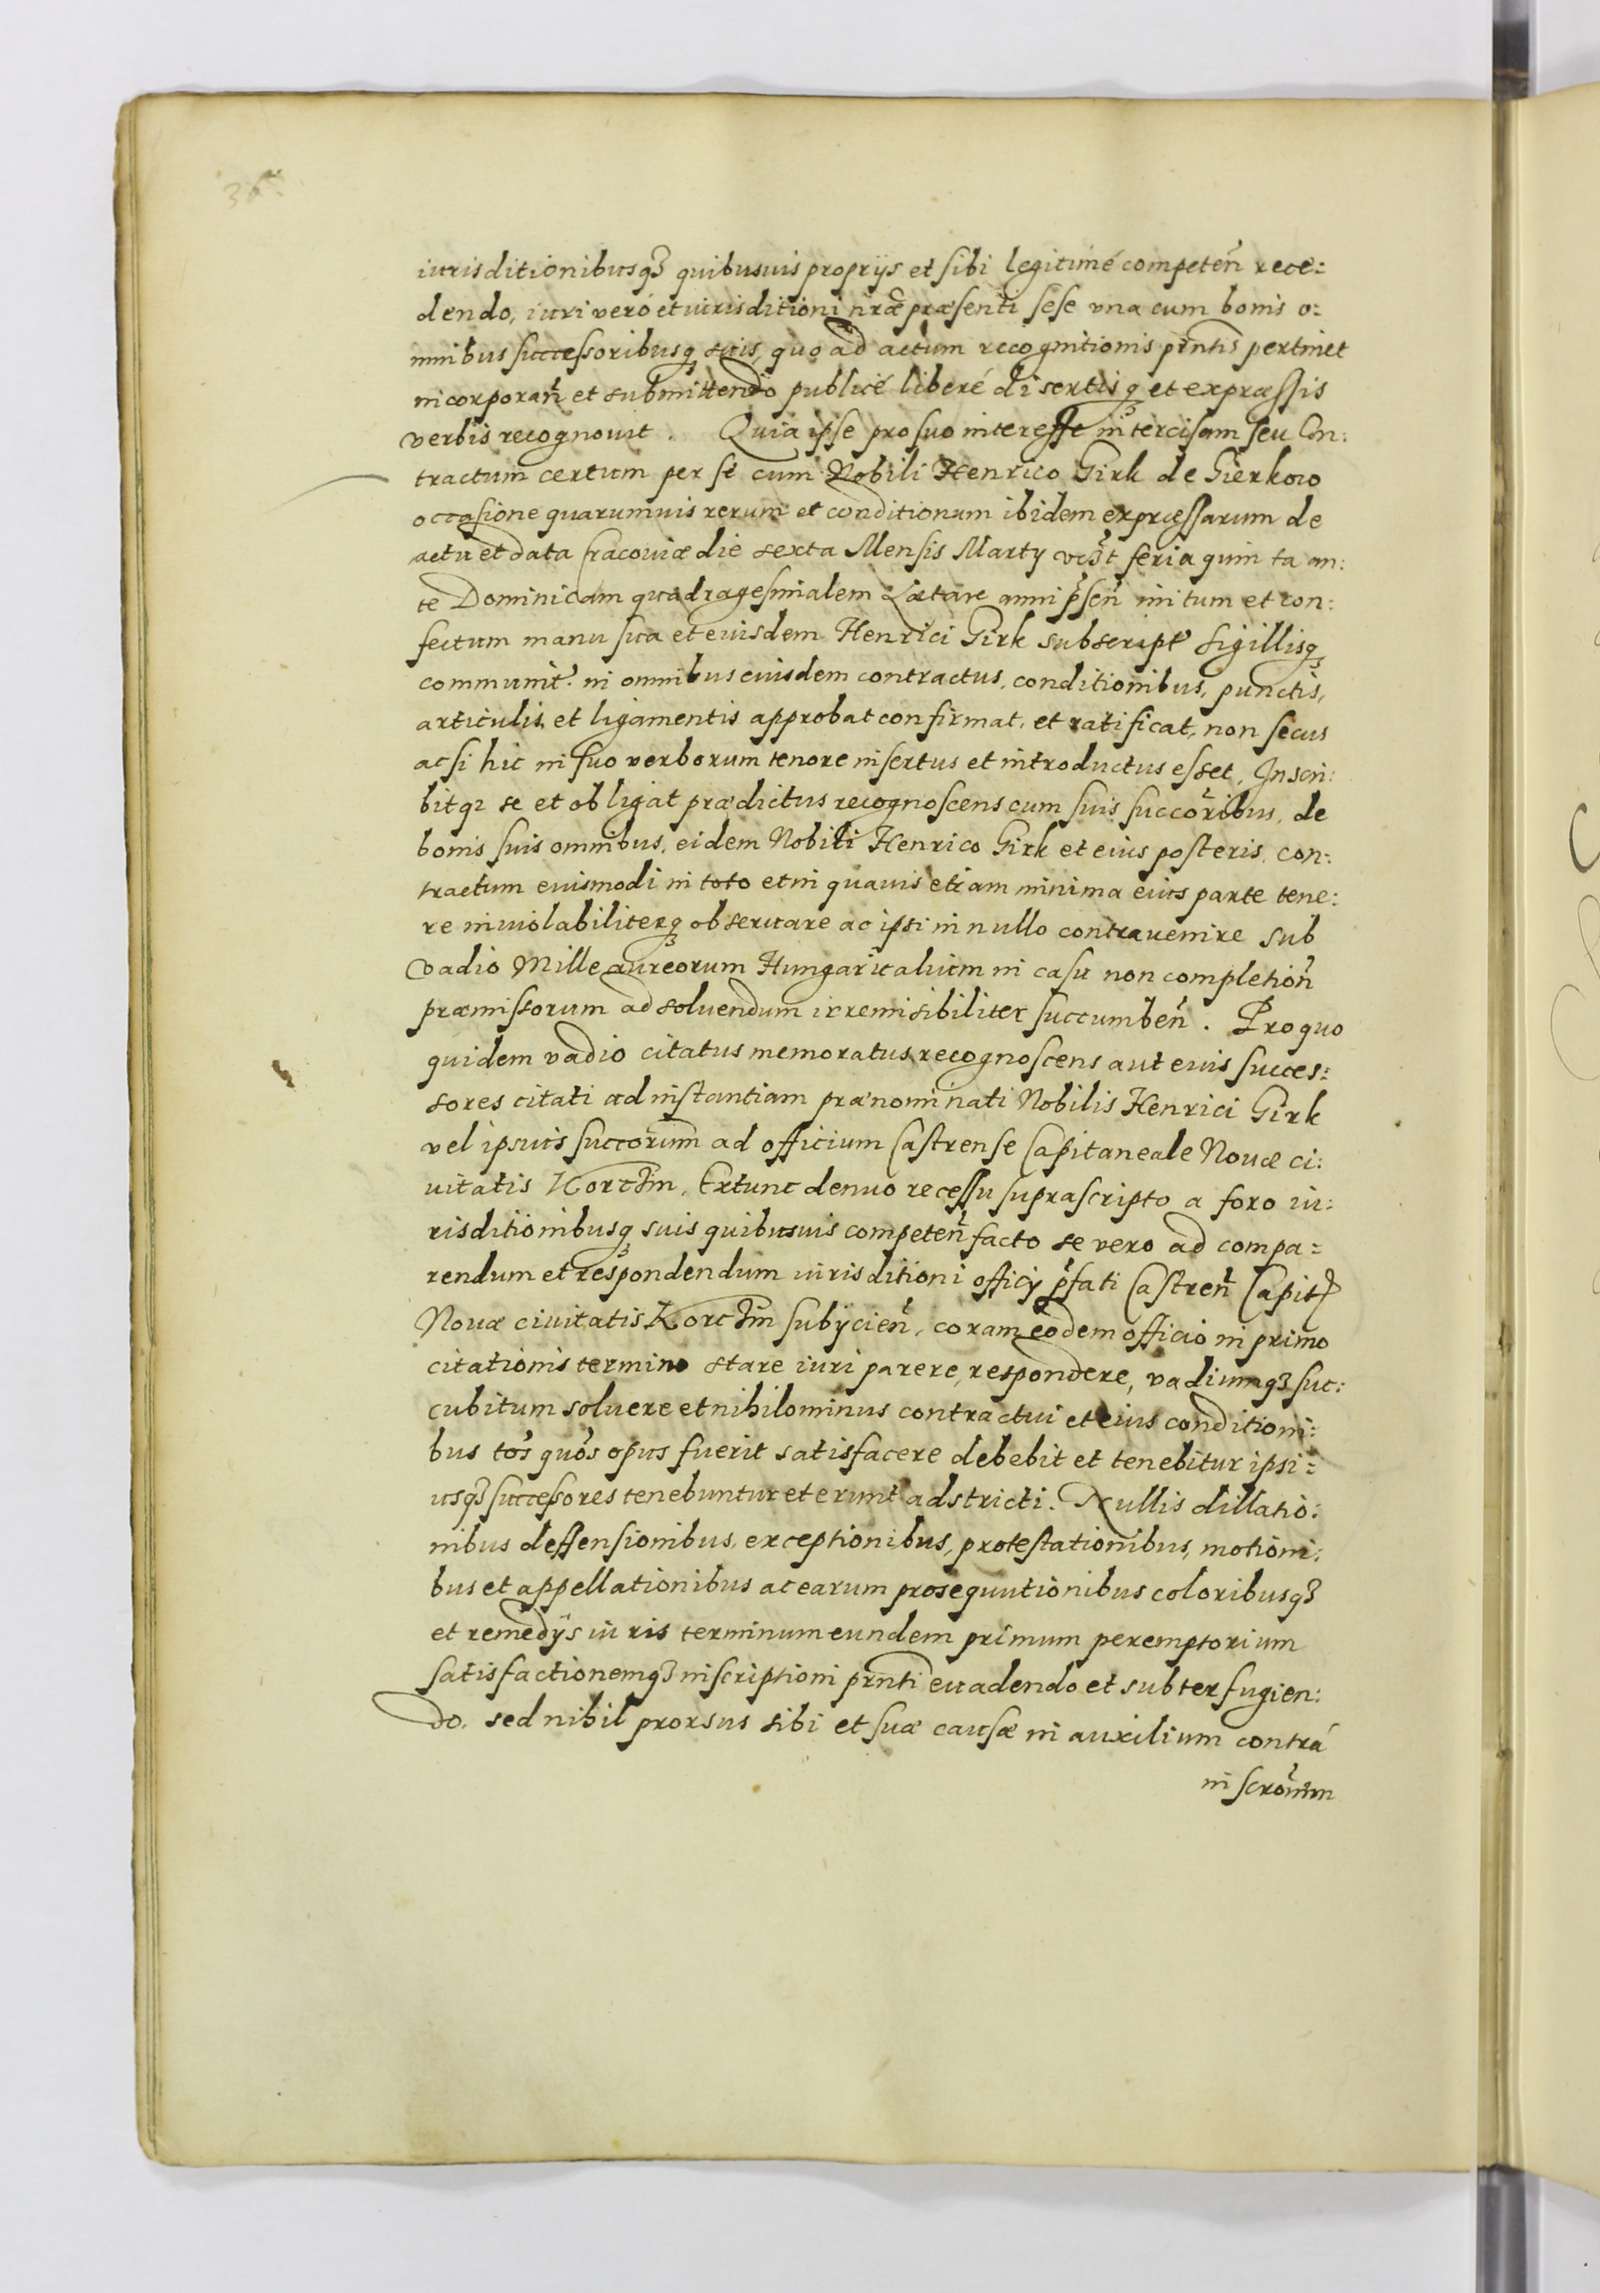 iurisditionibusq3 quibusuis proprijs et sibi legitimé competeñ rece:
dendo, iuri veró et iurisditioni nræ præsenti sese vna cum bonis o:
mnibus successoribusq3 suis, quo ad actum recognitionis prntis pertinet
incorporañ et submittendo publicé liberé disertisq3 et expræssis
verbis recognouit. Quia ipse pro suo interesse intercisam seu Con:
tractum certum per se cum Nobili Henrico Girk de Gierkow
occasione quarumuis rerum et conditionum ibidem expræssarum de
actu et data Cracouiæ die sexta Mensis Marty vest feria quinta an:
te Dominicam quadragesimalem Lætare anni psen initum et con:
fectum manu sua et eiusdem Henrici Girk subscript sigillisq3
communit. in omnibus eiusdem contractus, conditionibus, punctis,
articulis, et ligamentis approbat confirmat, et ratificat, non secus
ac si hic in suo verborum tenore insertus et introductus esset, Inscri:
bitq3 se et obligat prædictus recognoscens cum suis succoribus, de
bonis suis omnibus, eidem Nobili Henrico Girk et eius posteris, con:
tractum eiusmodi in toto et in quauis etiam minima eius parte tene:
re inuiolabiliterq3 obseruare ac ipsi in nullo contrauenire sub
vadio Mille aureorum Hungaricalium in casu non completioñ
præmissorum ad soluendum irremisibiliter succumbeñ. Pro quo
quidem vadio citatus memoratus recognoscens aut eius succes:
sores citati ad instantiam prænominati Nobilis Henrici Girk
vel ipsius succorum ad officium Castrense Capitaneale Nouæ ci:
uitatis Korczin, Extunc denuo recessu suprascripto a foro iu:
risditionibusq3 suis quibusuis competeñ facto se vero ad compa:
rendum et respondendum iurisditioni officij pfati Castreñ Capit
Nouæ ciuitatis Korczin subijcieñ, coram eodem officio in primo
citationis termino stare iuri parere, respondere, vadiumq3 suc:
cubitum soluere et nihilominus contractui et eius conditioni:
bus tos quos opus fuerit satisfacere debebit et tenebitur ipsi:
usq3 successores tenebuntur et erunt adstricti. Nullis dillatio:
nibus deffensionibus, exceptionibus, protestationibus, motioni:
bus et appellationibus ac earum prosequutionibus coloribusq3
et remedÿs iuris terminum eundem primum peremptorium
satisfactionemq3 inscriptioni prnti euadendo et subterfugien:
do, sed nihil prorsus sibi et suæ causæ in auxilium contrá
inscronem